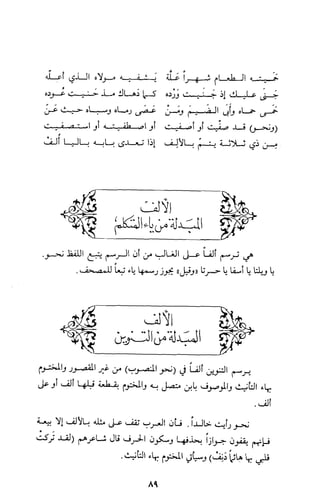 حميته الطعام شهراً علّه يشفيه مولاه الذي أعلّه
جنى عليك إذ جنيت وَرْده كما دهاك مذ حنيت عُوده
حمى حماه وأبى الضيم ومَن عصى رماه وسباه حيث عَنّ
(ونحو) قد صفَيت أو أصفيت أو اصطفيته أو استصفيت
من ذي ثلاثة يتم بالألف إذا تعدى بابه باليا أُلف
الألف
المبدلة من ياء المتكلم
هي ترسم ألفاً على الغالب من أن الرسم يتبع اللفظ نحو.
يا ويلتا يا أسفا يا حسرتا «وقيل» يجوز رسمها ياء تبعاً للمصحف.
الألف
المبدلة من التنوين
يرسم التنوين ألفاً في (نحو المنصوب) من غير المقصور والمختوم
بهاء التأنيث والموصوف بابن متصل به والمختوم بقطعة قبلها ألف أو على
ألف.
نحو رأيت خالداً. فأن العرب تقف على مثله بالألف إلا بيعة
فإنهم يقفون جوازاً بحذفها وسكون الحرف قال شاعرهم (لقد تركت
قلبي بها هائماً دَنِفْ) وسيأتي المختوم بهاء التأنيث.
٨٩